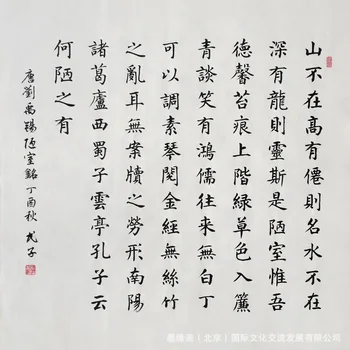 山不在高有僊則名水不在
深有龍則靈斯是陋室惟吾
德馨苔痕上階緑草色入簾
青談笑有鴻儒往來無白丁
可以調素琴閱金經無絲竹
之亂耳無案牘之勞形南陽
諸葛廬西蜀子雲亭孔子云
何陋之有
唐劉禹錫陋室銘丁酉秋
（北京）国际文化交流发展有限公司